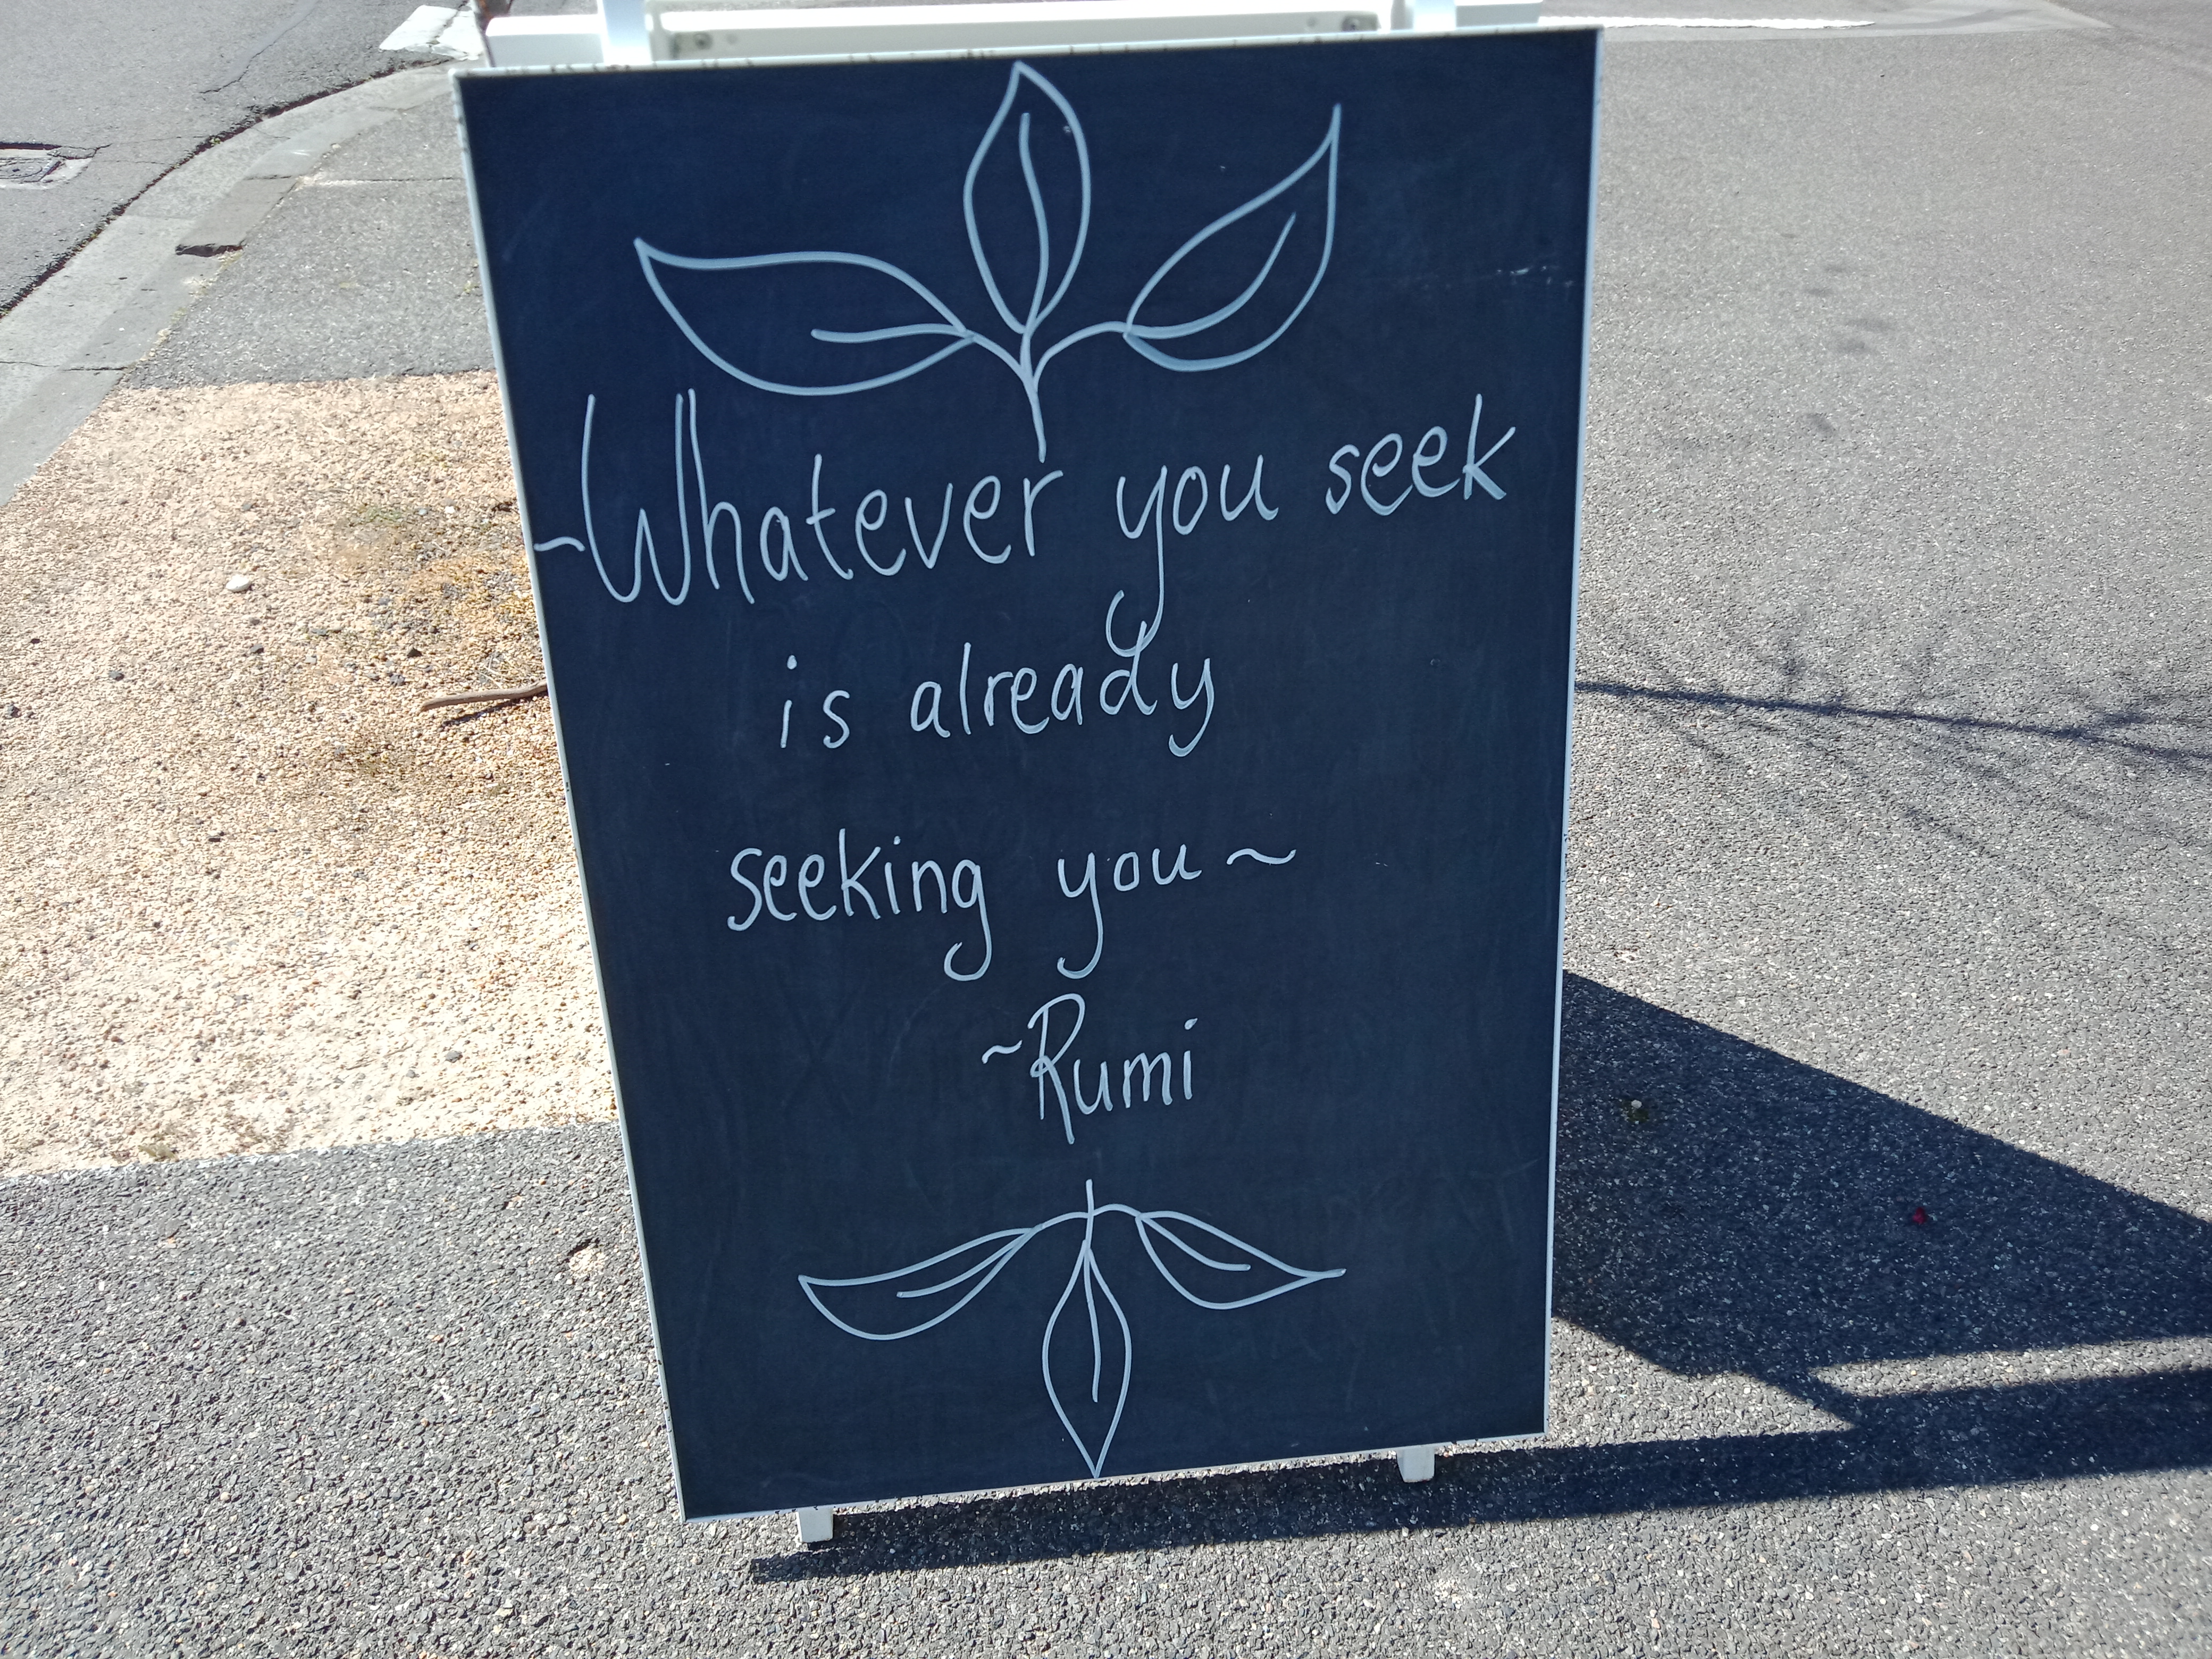 ~Whatever you seek
is already
seeking you~
~Rumi